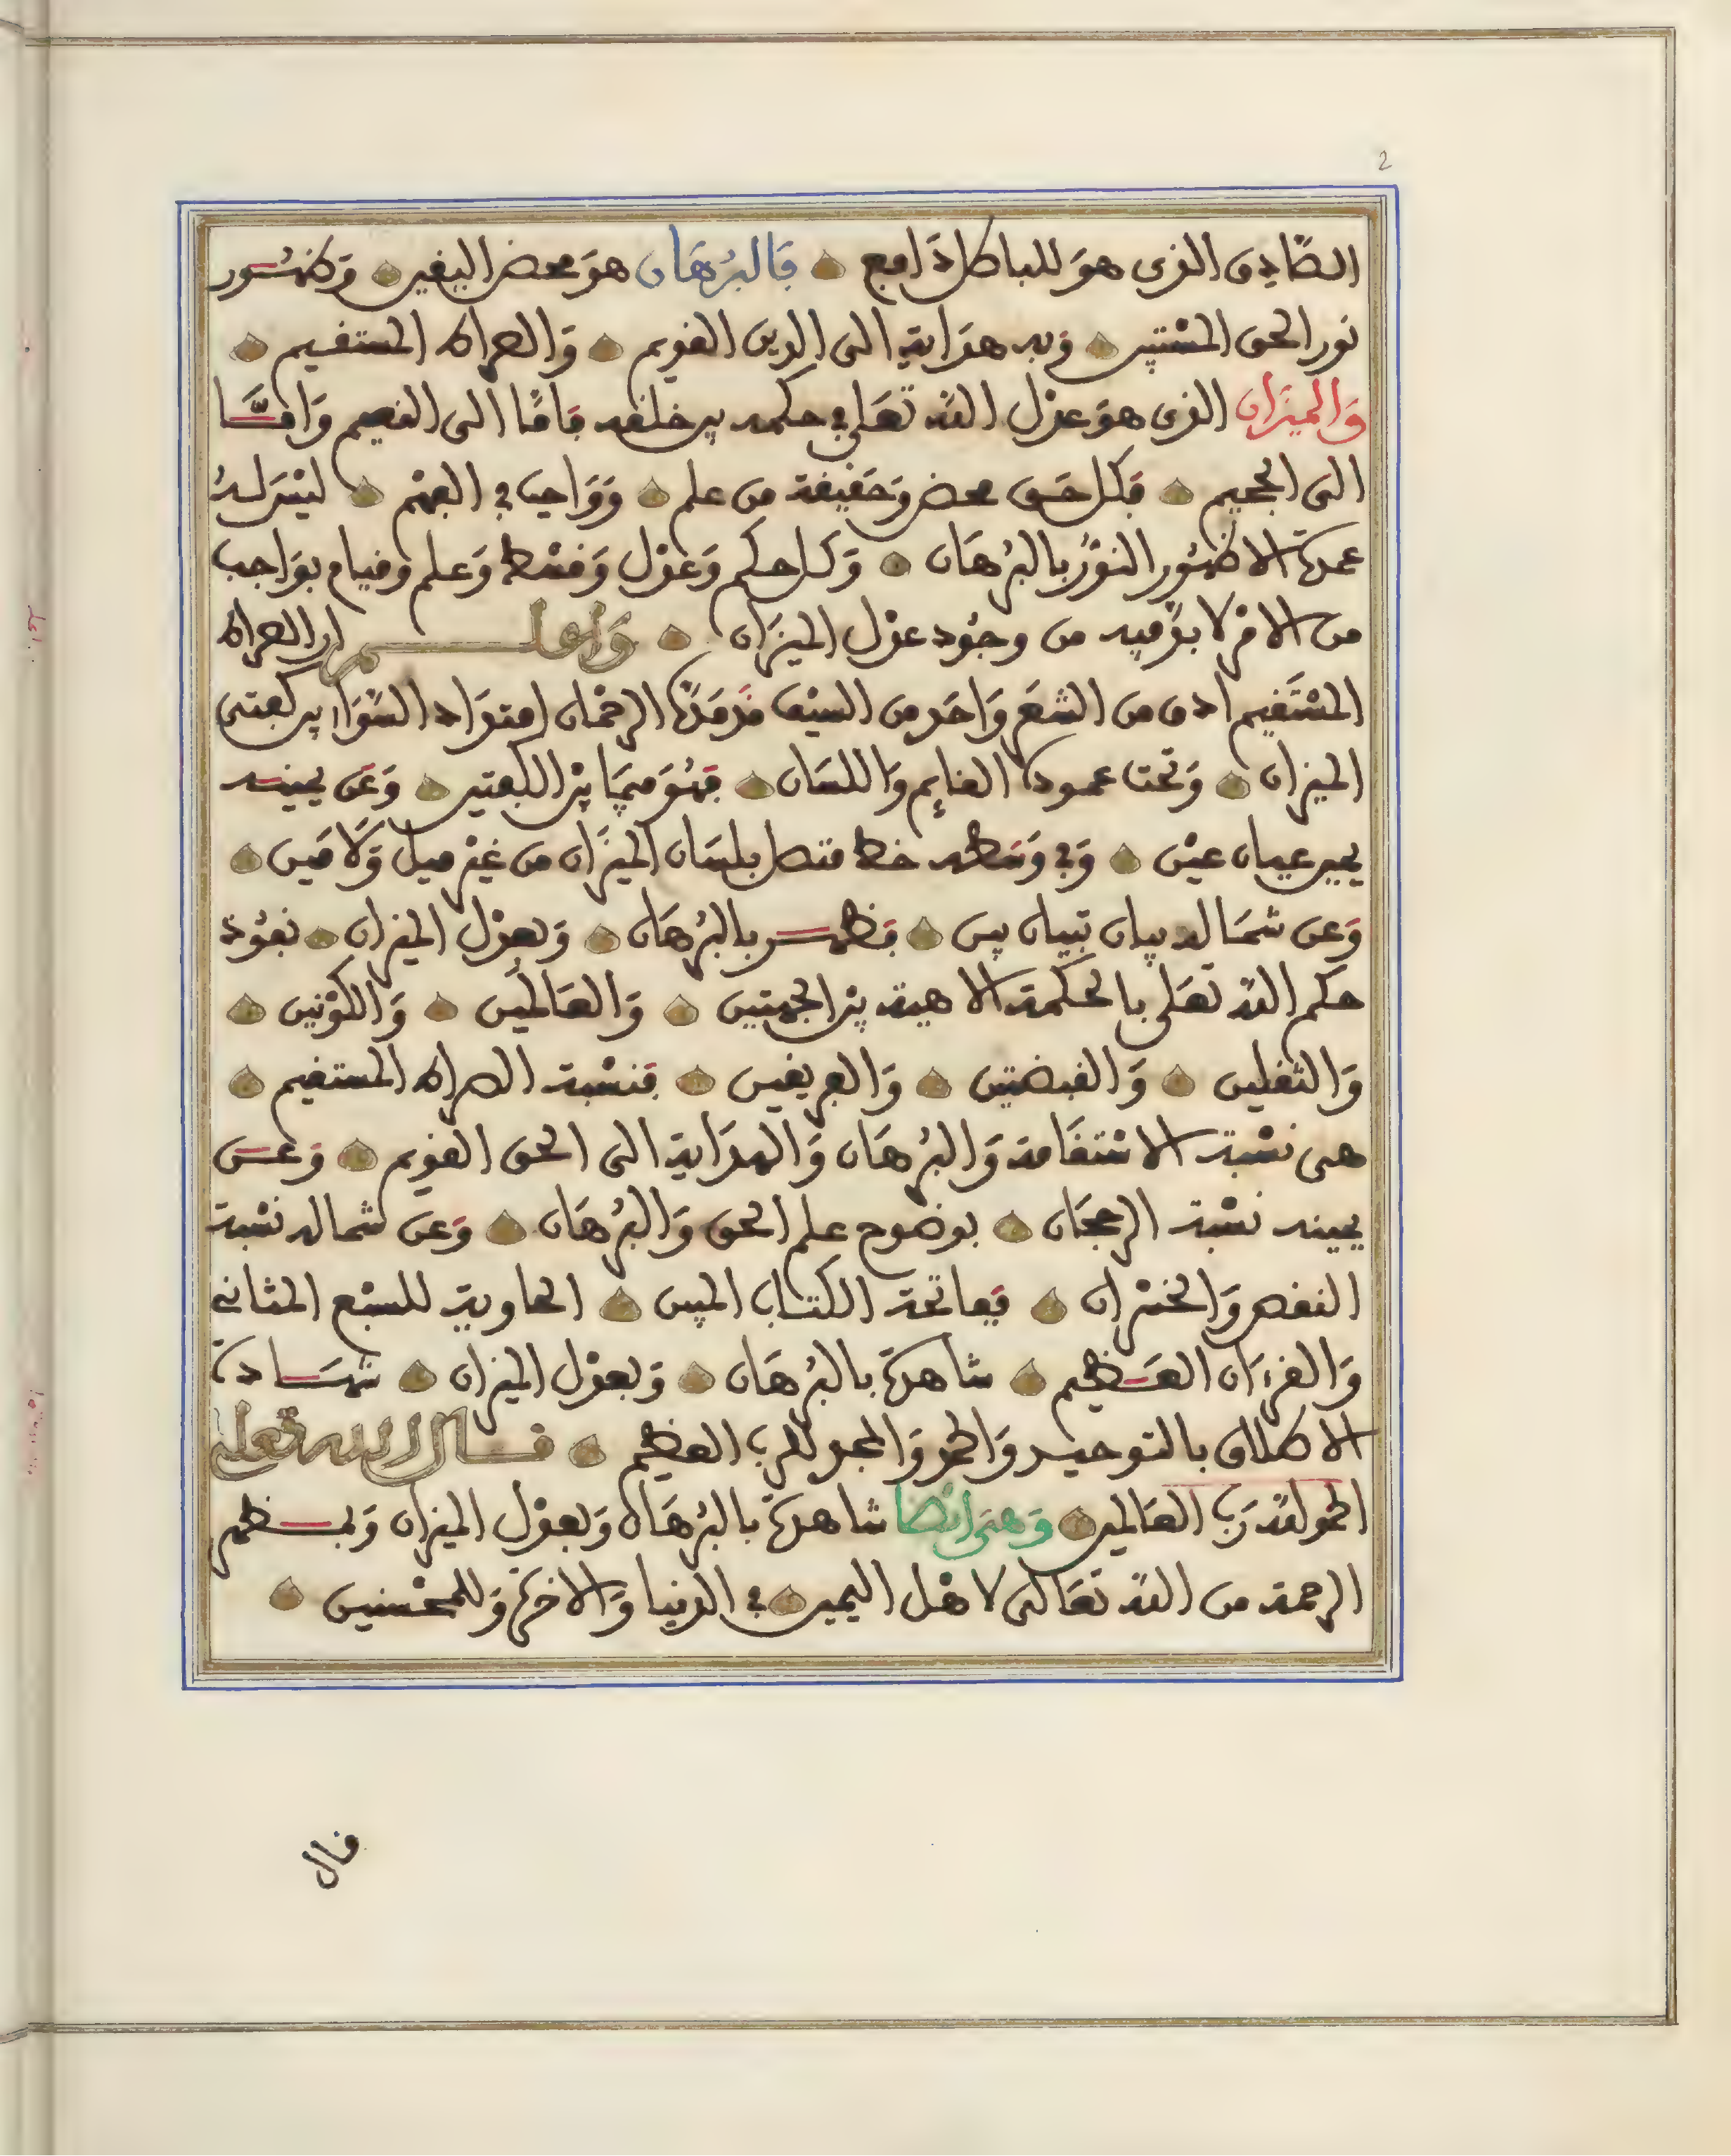 2
الصَّادِق الذى هوَ للباطل دَامغ فَالبُرْهَان هوَ محض اليقين وَظهُور
نور الحق المسْتبين وَبه هدَاية الى الدين القويم وَالصراط المستقيم
وَالميزَان الذى هوَ عدْل الله تعَلى فى حكمه بين خلقه فَامَّا الى النعيم وَامَّا
الى الجحيم فَكل حَق محض وَحَقيقة من علم وَوَاجب فى الفهْم ليْسَ لهُ
عمدَة الا ظهُور النوُّر بالبرُهَان وَكل حكم وَعدْل وَقسْط وَعلم وقيام بوَاجب
من الامْر لا بدَّ فيه من وجُود عدْل الميزَان وَاعلم ان الصراط
المسْتَقيم ادق من الشعَر وَاحَد من السيْف قد مَدَّهُ الرحْمَان امتدَاد السَّوَا بين كفتى
الميزان وَتحت عموده القائِم وَاللسَان فَهُوَ فيمَا بيْن الكفتين وَعَن يمينه
يمين عيان عيْن وَفى وَسَطه خط متصل بلسَان الميزَان من غيْر ميل وَلَا مَين
وَعن شمَاله بيان تبيان بين فَظهر بالبرُهَان وَبعدْل الميزان نفوُذ
حكم الله تعَلى بالحكمة الالاهية بيْن الجهتين وَالعَالمَين وَالكوْنين
وَالثقلين وَالقبضتين وَالفريقين فَنسْبة الصراط المستقيم
هى نسْبة الاسْتقَامة وَالبرُهَان وَالهدَاية الى الحق القويم وَعن
يمينه نسْبة الرجحَان بوضوح علم الحق وَالبرُهَان وَعن شماله نسْبة
النقص وَالخسْران فَفاتحة الكتاب المبين الحاوية للسبْع المثانى
وَالقرءَان العَظيم شاهدَة بالبرُهَان وَبعدْل الميزان شهَادة
الاطلاق بالتوحيد وَالحمد وَالمجد للرب العظيم قال الله تعلى
الحمد لله رَب العَالمين وَهىَ ايْضا شاهدَة بالبرُهَان وَبعدْل الميزان وَبمظهر
الرحمة من الله تعَالى لاهْل اليمين فى الدنيا وَالاخرَة وَللمحْسنين
قال